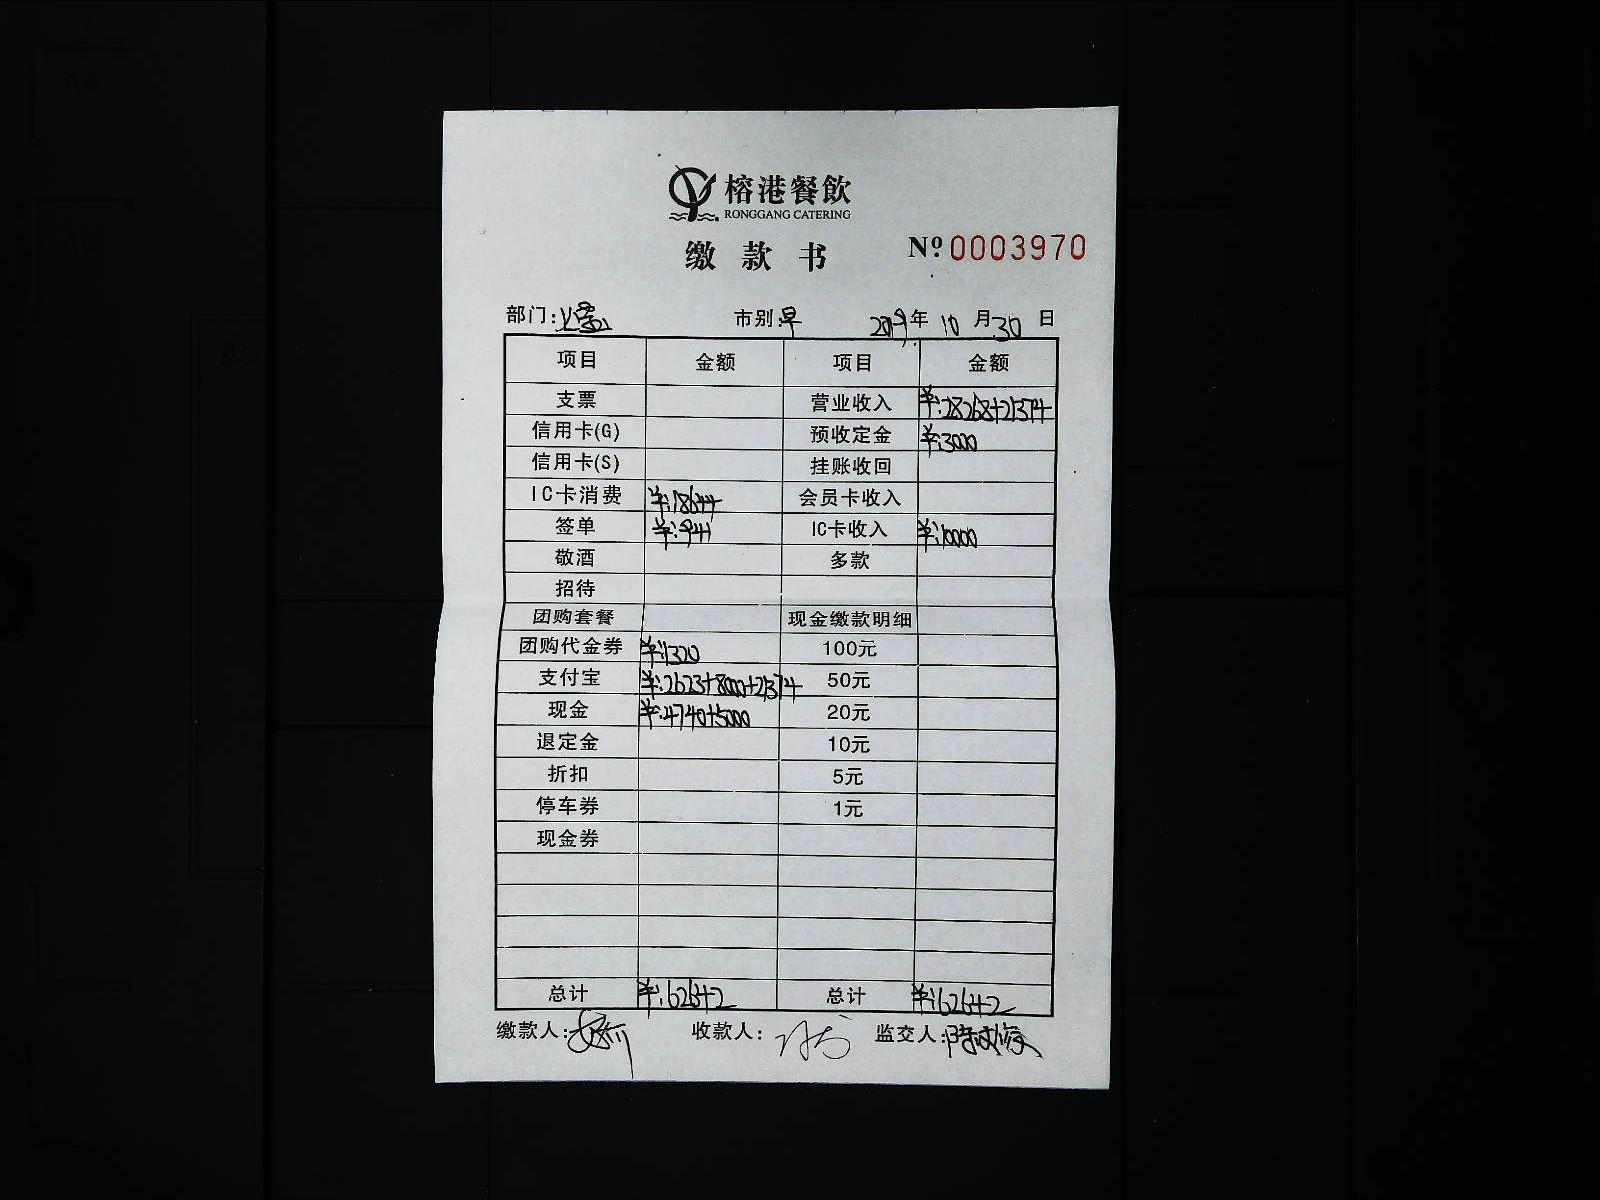 榕港餐飲
RONGGANG CATERING
缴款书 Nº 0003970
部门: 市别:早 2019年10月30日
项目 金额 项目 金额
支票 营业收入 ¥:28268+21374
信用卡(G) 预收定金 ¥:3000
信用卡(S) 挂账收回
IC卡消费 ¥:18644 会员卡收入
签单 ¥:941 IC卡收入 ¥:10000
敬酒 多款
招待
团购套餐 现金缴款明细
团购代金券 ¥:1320 100元
支付宝 ¥:2623+8000+21374 50元
现金 ¥:4740+5000 20元
退定金 10元
折扣 5元
停车券 1元
现金券
总计 ¥:62642 总计 ¥:62642
缴款人: 收款人: 监交人: